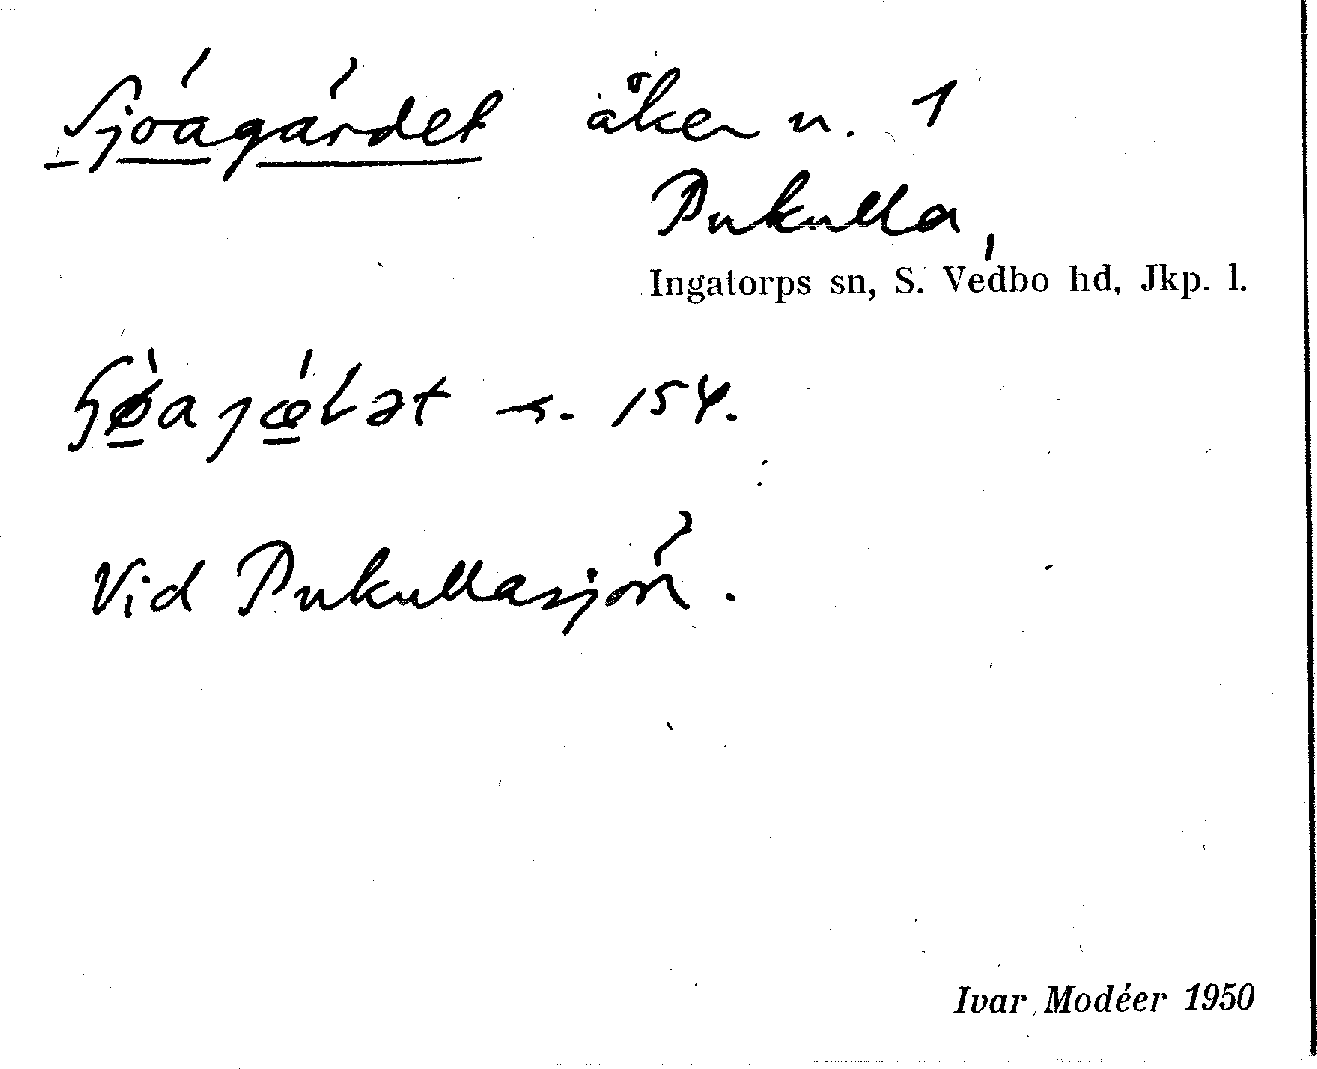 Sjöagärdet åker n. 1
Pukulla,
Ingatorps sn, S. Vedbo hd, Jkp. l.
154.
Vid Pukullasjön.
Ivar Modéer 1950